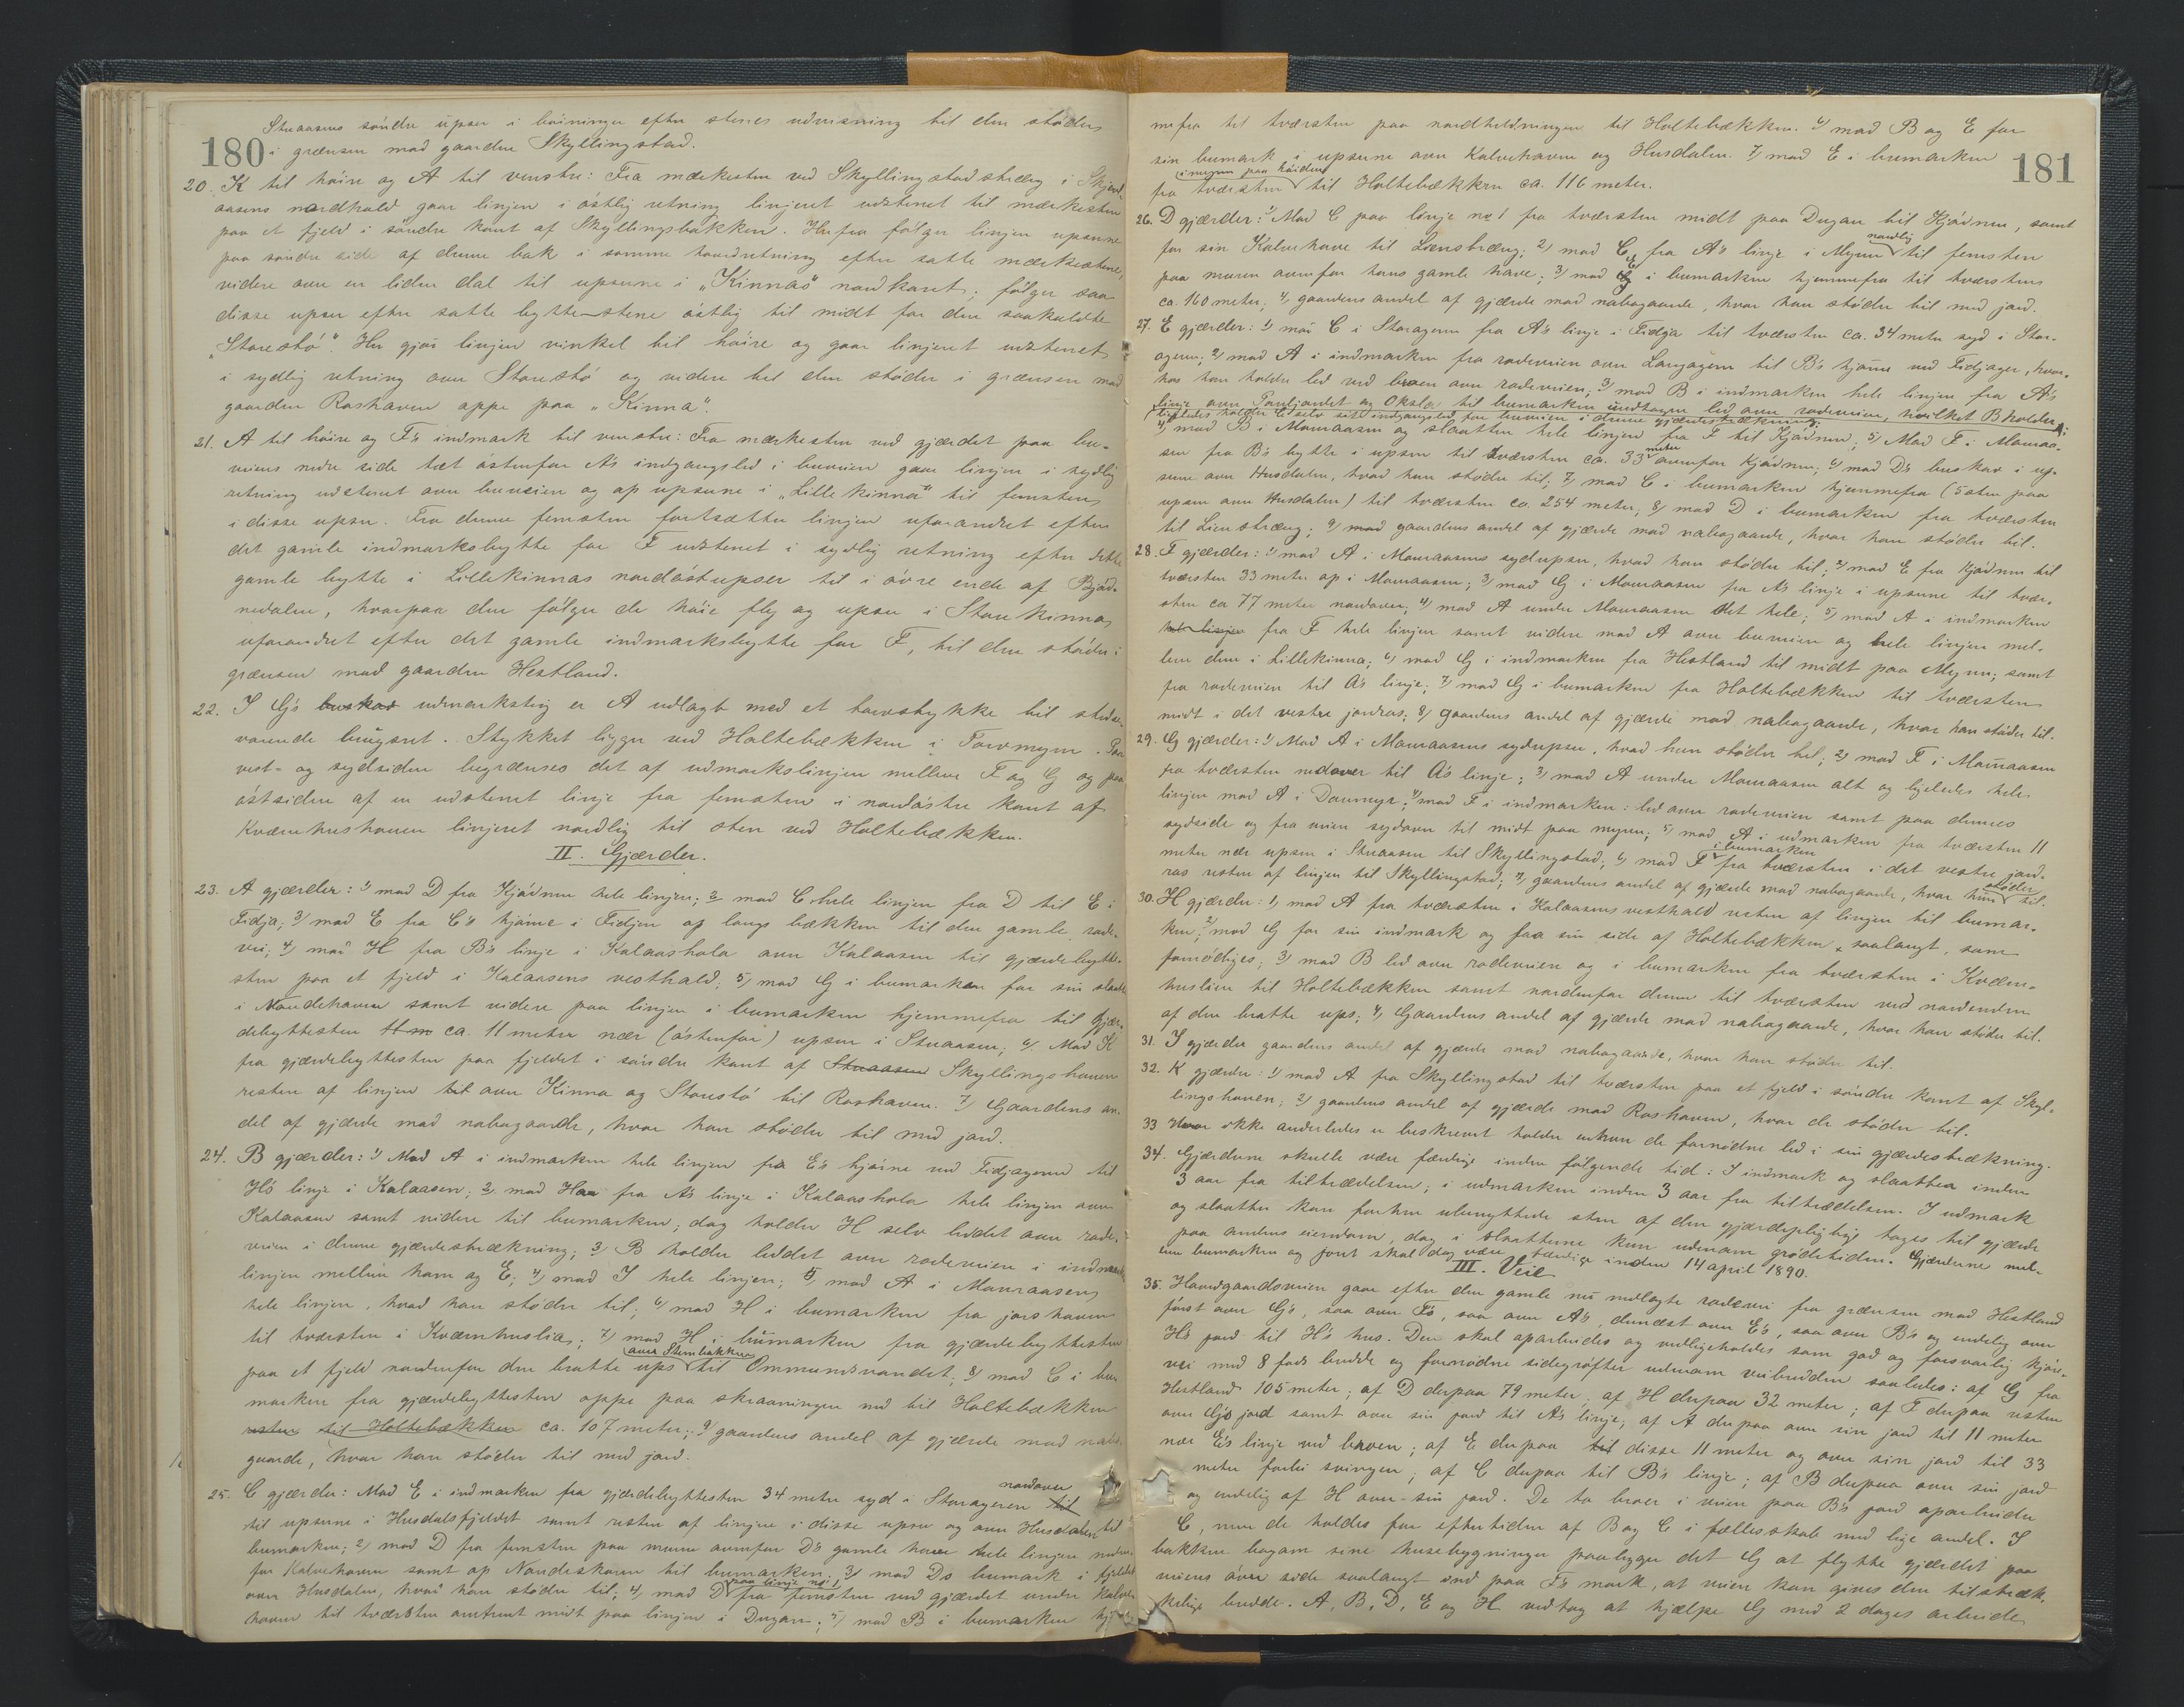 180
Stuaasens söndre upser i böininger efter stenes udvisning til den stöder
i grænsen mod gaarden Skyllingstad.
20. K til höire og A til venstre: Fra mærkesten ved Skyllingstadstræng i
aasens nordhald gaar linjen i östlig retning linjeret udstenet til mærkesten
paa et fjeld i söndre kant af Skyllingsbakken. Herfra fölger linjen upserne
paa söndre side af denne bak i samme hovedretning efter satte mærkestene,
videre over en liden dal til upserne i „Kinnas" nordkant; fölger saa
disse upser efter satte byttestene östlig til midt for den saakaldte
„Storestö". Her gjör linjen vinkel til höire og gaar linjeret udstenet
i sydlig retning over Storestö og videre til den stöder i grænsen mod
gaarden Roshaven oppe paa „Kinna".
21. A til höire og F's indmark til venstre: Fra mærkesten ved gjærdet paa bu-
veiens nedre side tæt östenfor A's indgangsled i buveien gaar linjen i sydlig
retning udstenet over buveien og op upserne i „Lille kinna" til femsten
i disse upser. Fra denne femsten fortsætter linjen uforandret efter
det gamle indmarksbytte for F udstenet i sydlig retning efter dette
gamle bytte i Lillekinnas nordöstupser til i övre ende af Bjöd-
nedalen, hvorpaa den fölger de höie fly og upser i Store kinna
uforandret efter det gamle indmarksbytte for F, til den stöder i
grænsen mod gaarden Hestland.
22. I G's buskar udmarksteig er A udlagt med et torvstykke til stedse-
varende brugsret. Stykket ligger ved Holtebækken i Torvmyren. Paa
vest- og sydsiden begrænses det af udmarkslinjen mellem F og G og paa
östsiden af en udstenet linje fra femsten i nordöstre kant af
Kværnhushaven linjeret nordlig til sten ved Holtebækken.
II. Gjærder.
23. A gjærder: 1) mod D fra Kjödnen hele linjen; 2) mod C hele linjen fra D til E i
Fidja; 3) mod E fra C's hjörne i Fidjen op langs bækken til den gamle rode-
vei; 4) mod H fra B's linje i Kalaashola over Kalaasen til gjærdebytte-
sten paa et fjeld i Kalaasens vesthald; 5) mod G i bumarken for sin slaatte
i Nondehaven samt videre paa linjen i bumarken hjemmefra til gjær-
debyttesten 11 m ca. 11 meter nær (östenfor) upsen i Stuaasen; 6) Mod K
fra gjærdebyttesten paa fjeldet i söndre kant af Stuaasen Skyllingshaven
resten af linjen til over Kinna og Storestö til Roshaven. 7) Gaardens an-
del af gjærde mod nabogaarde, hvor han stöder til med jord.
24. B gjærder: 1) Mod A i indmarken hele linjen fra E's hjörne ved Fidjageren til
H's linje i Kalaasen; 2) mod H fra A's linje i Kalaashola hele linjen over
Kalaasen samt videre til bumarken; dog holder H selv leddet over rode-
veien i denne gjærdestrækning; 3) B holder leddet over rodeveien i indmark
linjen mellem ham og E; 4) mod I hele linjen; 5) mod A i Mauraasen
hele linjen, hvad han stöder til; 6) mod H i bumarken fra jorshaven
til tværsten i Kværnhuslia; 7) mod H i bumarken fra gjærdebyttesten
over Stembakken
paa et fjeld nordenfor den bratte ups til Ommundsvandet; 8) mod C i bu-
marken fra gjærdebyttesten oppe paa skraaningen ned til Holtebækken
resten til Holtebækken ca. 107 meter; 9) gaardens andel af gjærde mod nabo-
gaarde, hvor han stöder til med jord.
nordover
25. C gjærder: Mod E i indmarken fra gjærdebyttesten 34 meter syd i Storageren til
til upserne i Husdalsfjeldet samt resten af linjen i disse upser og over Husdalen til
bumarken; 2) mod D fra femsten paa muren ovenfor D's gamle have hele linjen
for Kalvehaven samt op Nondeskaren til bumarken; 3) mod D's bumark i fjeldet
paa linje no 1
over Husdalen, hvad han stöder til; 4) mod D fra femsten ved gjærdet under Kalve-
haven til tværsten omtrent midt paa linjen i Dugan; 5) mod B i bumarken hjem-
181
mefra til tværsten paa nordheldningen til Holtebækken. 6) mod B og E for
sin bumark i upserne over Kalvehaven og Husdalen. 7) mod E i bumarken
i myren paa höiden
fra tværsten til Holtebækken ca. 116 meter.
26. D gjærder: 1) Mod C paa linje no 1 fra tværsten midt paa Dugan til Kjödnen, samt
nordlig
for sin Kalvehave til Lænsbræng; 2) mod C fra A's linje i Myren til femsten
paa muren ovenfor hans gamle have; 3) mod E i bumarken hjemmefra til tværsten
ca. 160 meter; 4) gaardens andel af gjærde mod nabogaarde, hvor han stöder til med jord.
27. E gjærder: 1) mod C i Storageren fra A's linje i Fidja til tværsten ca. 34 meter syd i Stor-
ageren; 2) mod A i indmarken fra rodeveien over Langageren til B's hjörne ved Fidjager, hvor-
hos han holder led ved broen over rodeveien; 3) mod B i indmarken hele linjen fra A's
linje over Tanljordet og Oksla til bumarken undtagen led over rodeveien, hvilket B holder;
ligeledes holder E selv sit indgangsled for buveien i denne gjærdestrækning;
4) mod B i Mauraasen og slaatten hele linjen fra F til Kjödnen; 5) Mod F i Mauraa-
meter
sen fra B's bytte i upsen til tværsten ca. 33 ovenfor Kjödnen; 6) mod D's buskar i up-
serne over Husdalen, hvad han stöder til; 7) mod C i bumarken hjemmefra (5 sten paa
upsen over Husdalen) til tværsten ca. 254 meter; 8) mod D i bumarken fra tværsten
til Lienstræng; 9) mod gaardens andel af gjærde mod nabogaarde, hvor han stöder til.
28. F gjærder: 1) mod A i Mauraasens sydupser, hvad han stöder til; 2) mod E fra Kjödnen til
tværsten 33 meter op i Mauraasen; 3) mod G i Mauraasen fra A's linje i upserne til tvær-
sten ca 77 meter nordover; 4) mod A under Mauraasen det hele; 5) mod A i indmarken
hele linjen fra F hele linjen samt videre mod A over buveien og hele linjen mel-
lem dem i Lillekinna; 6) mod G i indmarken fra Hestland til midt paa Myren, samt
fra rodeveien til A's linje; 7) mod G i bumarken fra Holtebækken til tværsten
midt i det vestre jordras; 8) gaardens andel af gjærde mod nabogaarde, hvor han stöder til.
29. G gjærder: 1) Mod A i Mauraasens sydupser, hvad hun stöder til; 2) mod F i Mauraasen
fra tværsten nedover til A's linje; 3) mod A under Mauraasen alt og ligeledes hele
linjen mod A i Daumyr; 4) mod F i indmarken: led over rodeveien samt paa dennes
sydside og fra veien sydover til midt paa myren; 5) mod A i udmarken fra tværsten 11
i bumarken
meter nær upsen i Stuaasen til Skyllingstad; 6) mod F fra tværsten i det vestre jord-
ras resten af linjen til Skyllingstad; 7) gaardens andel af gjærde mod nabogaarde, hvor hun stöder til.
30. H gjærder: 1) mod A fra tværsten i Kalaasens vesthald resten af linjen til bumar-
ken; 2) mod G for sin indmark og paa sin side af Holtebækken saalangt, som
fornödiges; 3) mod B led over rodeveien og i bumarken fra tværsten i Kværn-
huslien til Holtebækken samt nordenfor denne til tværsten ved nordenden
af den bratte ups; 4) Gaardens andel af gjærde mod nabogaarde, hvor han stöder til.
31. I gjærder gaardens andel af gjærde mod nabogaarde, hvor han stöder til.
32. K gjærder: 1) mod A fra Skyllingstad til tværsten paa et fjeld i söndre kant af Skyl-
lingshaven; 2) gaardens andel af gjærde mod Roshaven, hvor de stöder til.
33 Hvor ikke anderledes er beskrevet holder enhver de fornödne led i sin gjærdestrækning.
34. Gjærderne skulle være færdige inden fölgende tid: I indmark og slaatter inden
3 aar fra tiltrædelsen; i udmarken inden 3 aar fra tiltrædelsen. I udmark
og slaatter kan forhen ubenyttede sten af den gjærdepligtige tages til gjærde
paa andens eiendom, dog i slaatterne kun udenom grödetiden. Gjærderne mel-
lem bumarken og jord skal dog være færdige inden 14 april 1890.
III. Veie
35. Hovedgaardsveien gaar efter den gamle nu nedlagte rodevei fra grænsen mod Hestland
först over G's, saa over F's, saa over A's, dernæst over E's, saa over B's og endelig over
H's jord til H's hus. Den skal oparbeides og vedligeholdes som god og forsvarlig kjöre-
vei med 8 fods bredde og fornödne sidegröfter udenom veibredden saaledes: af G fra
Hestland 105 meter; af D derpaa 79 meter; af H derpaa 32 meter; af F derpaa resten
over G's jord samt over sin jord til A's linje; af A derpaa over sin jord til 11 meter
nær E's linje ved broen; af E derpaa til disse 11 meter og over sin jord til 33
meter forbi svingen; af C derpaa til B's linje; af B derpaa over sin jord
og endelig af H over sin jord. De to broer i veien paa B's jord oparbeider
C, men de holdes for eftertiden af B og C i fællesskab med lige andel. I
bakken bagom sine husebygninger paaligger det G at flytte gjærdet paa
veiens övre side saalangt ind paa F's mark, at veien kan gives den tilstræk-
kelige bredde. A, B, D, E og H vedtog at hjælpe G med 2 dages arbeide